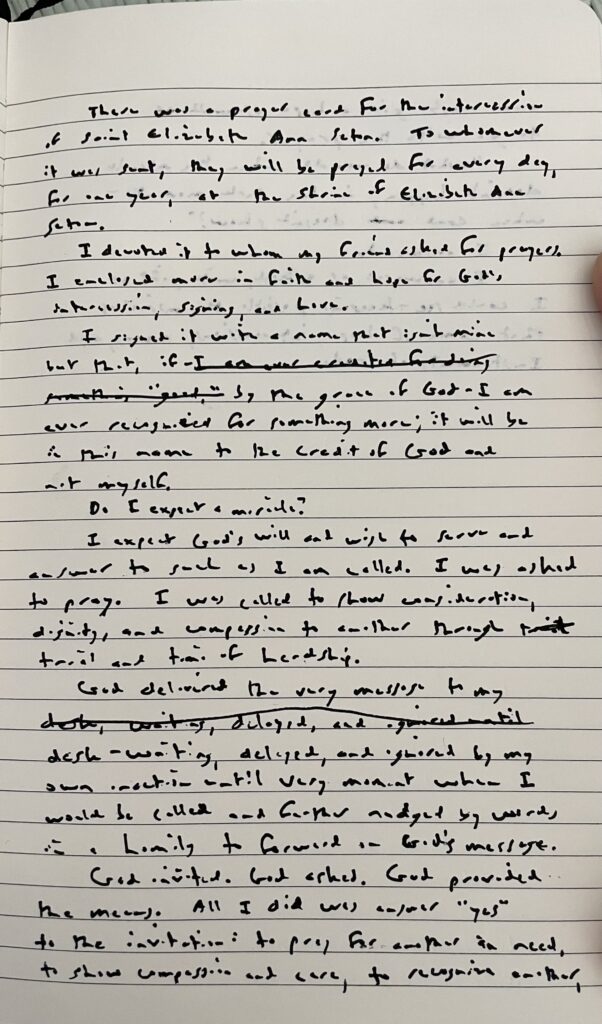 There was a prayer card for the intercession
of Saint Elizabeth Ann Seton. To whomever
it was sent, they will be prayed for every day,
for one year, at the Shrine of Elizabeth Ann
Seton.
I devoted it to whom my friend asked for prayers.
I enclosed more in faith and hope for God's
intercession, signing, and love.
I signed it with a name that isn't mine
but that, if - I am ever credited for doing
something "good," by the grace of God - I am
ever recognized for something more; it will be
in this name to the credit of God and
not myself.
Do I expect a miracle?
I expect God's will and wish to serve and
answer to such as I am called. I was asked
to pray. I was called to show consideration,
dignity, and compassion to another through
trial and time of hardship.
God delivered the very message to my
desk, waiting, delayed, and ignored until
desk - waiting, delayed, and ignored by my
own inaction until very moment when I
would be called and further nudged by words
in a homily to forward on God's message.
God invited. God asked. God provided
the means. All I did was answer "yes"
to the invitation: to pray for another in need,
to show compassion and care, to recognize another,